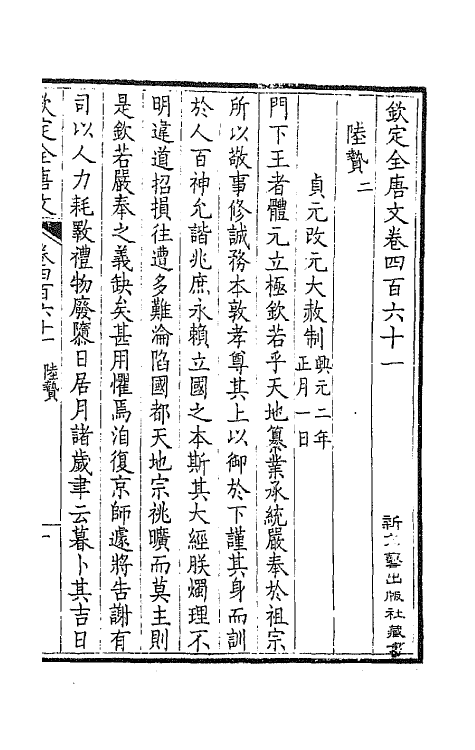 欽定全唐文卷四百六十一
陸贄二
貞元改元大赦制興元二年正月一日
門下王者體元立極欽若乎天地纂業承統嚴奉於祖宗
所以敬事修誠務本敦孝尊其上以御於下謹其身而訓
於人百神允諧兆庶永賴立國之本斯其大經朕燭理不
明違道招損往遭多難淪陷國都天地宗祧曠而莫主則
是欽若嚴奉之義缺矣甚用懼焉洎復京師遽將告謝有
司以人力耗斁禮物廢隳日居月諸歲聿云暮卜其吉日
欽定全唐文 卷四百六十一 陸贄 一
新文藝出版社藏書